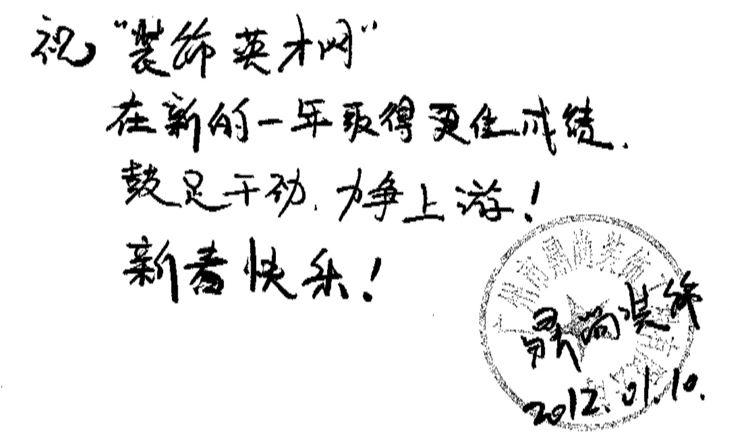 祝"装饰英才网"
在新的一年取得更佳成绩.
鼓足干劲.力争上游!
新春快乐!
广州市鼎尚装饰
鼎尚装饰
2012.01.10.